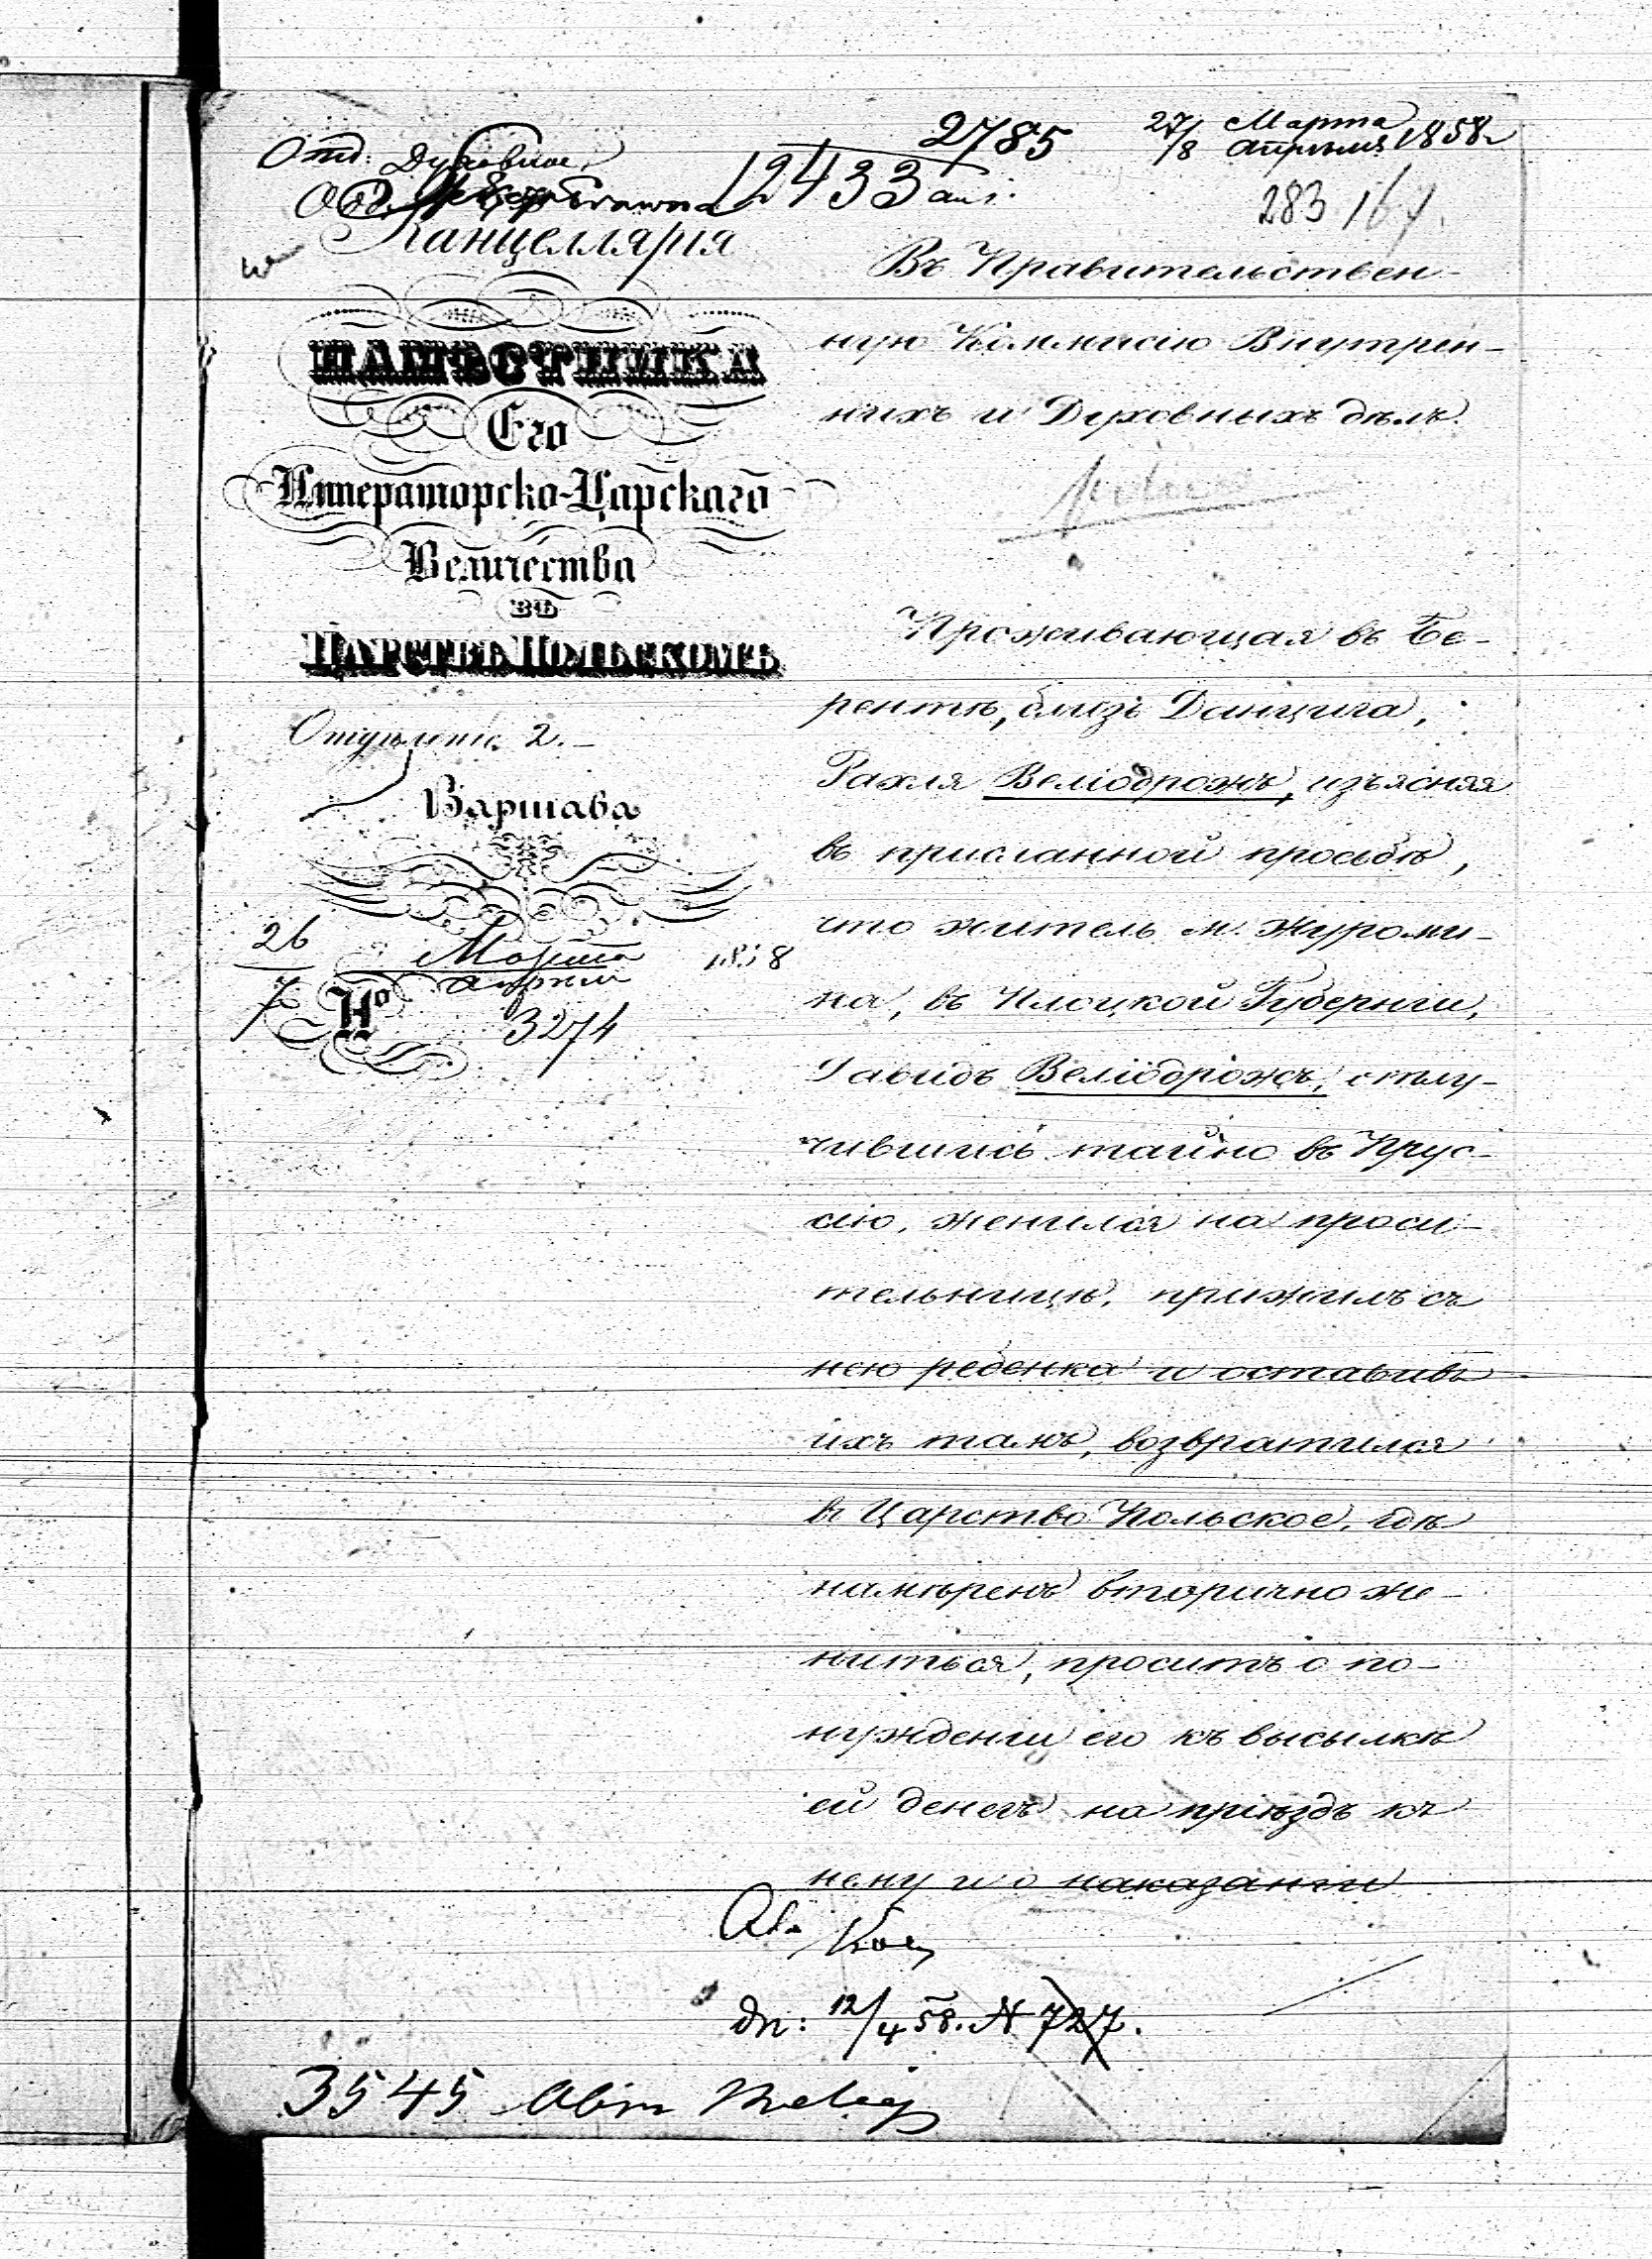 2785
27/8 Марта Апрѣля 1858
Отд: Духовное
12433
283
Канцеллярія
НАМѢСТНИКА
Его
Императорско-Царскаго
Величества
ВЪ
ЦАРСТВѢ ПОЛЬСКОМЪ
Отдѣленіе 2.
Варшава
26 Марта 1858
7 Апрѣля
№ 3274
Въ Правительствен-
ную Коммисію Внутрен-
нихъ и Духовныхъ дѣлъ.
Проживающая въ Бе-
рентѣ, близь Данцига,
Рахля Веліодрожъ, изъясняя
въ присланной просьбѣ,
что житель м. Журоми-
на, въ Плоцкой Губерніи,
Давидъ Веліодрожъ, отлу-
чившись тайно въ Прус-
сію, женился на проси-
тельницѣ, прижилъ съ
нею ребенка и оставивъ
ихъ тамъ, возвратился
въ Царство Польское, гдѣ
намѣренъ вторично же-
ниться, проситъ о по-
нужденіи его къ высылкѣ
ей денегъ на пріѣздъ къ
нему и о наказаніи
dn: 12/4 58. N 727.
3545